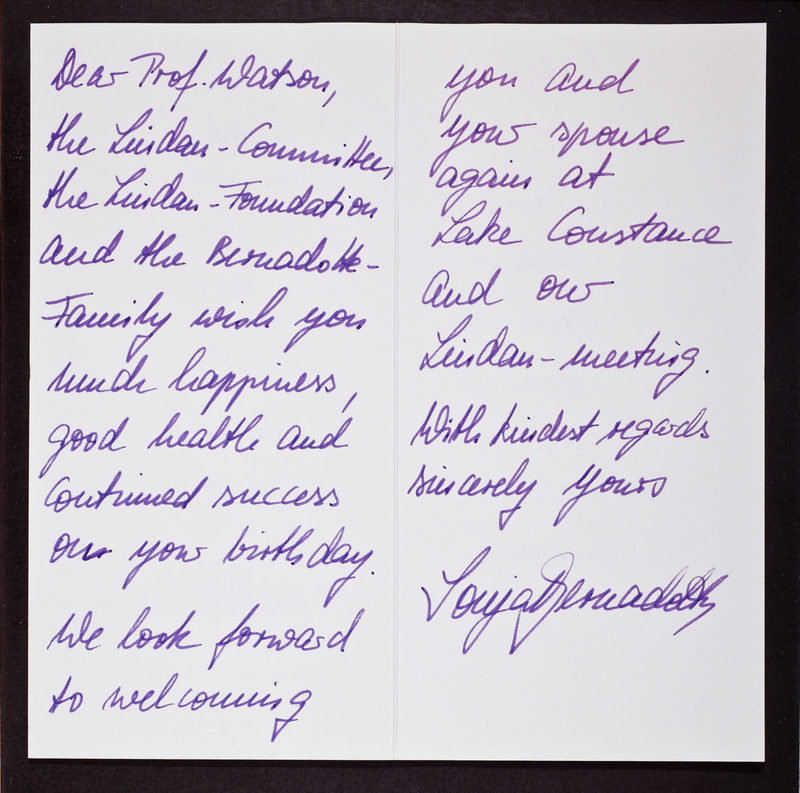 Dear Prof. Watson,
the Lindau-Committee,
the Lindau-Foundation
and the Bernadotte-
Family wish you
much happiness,
good health and
continued success
on your birthday.
We look forward
to welcoming
you and
your spouse
again at
Lake Constance
and our
Lindau-meeting.
With kindest regards
sincerely yours
Sonja Bernadotte